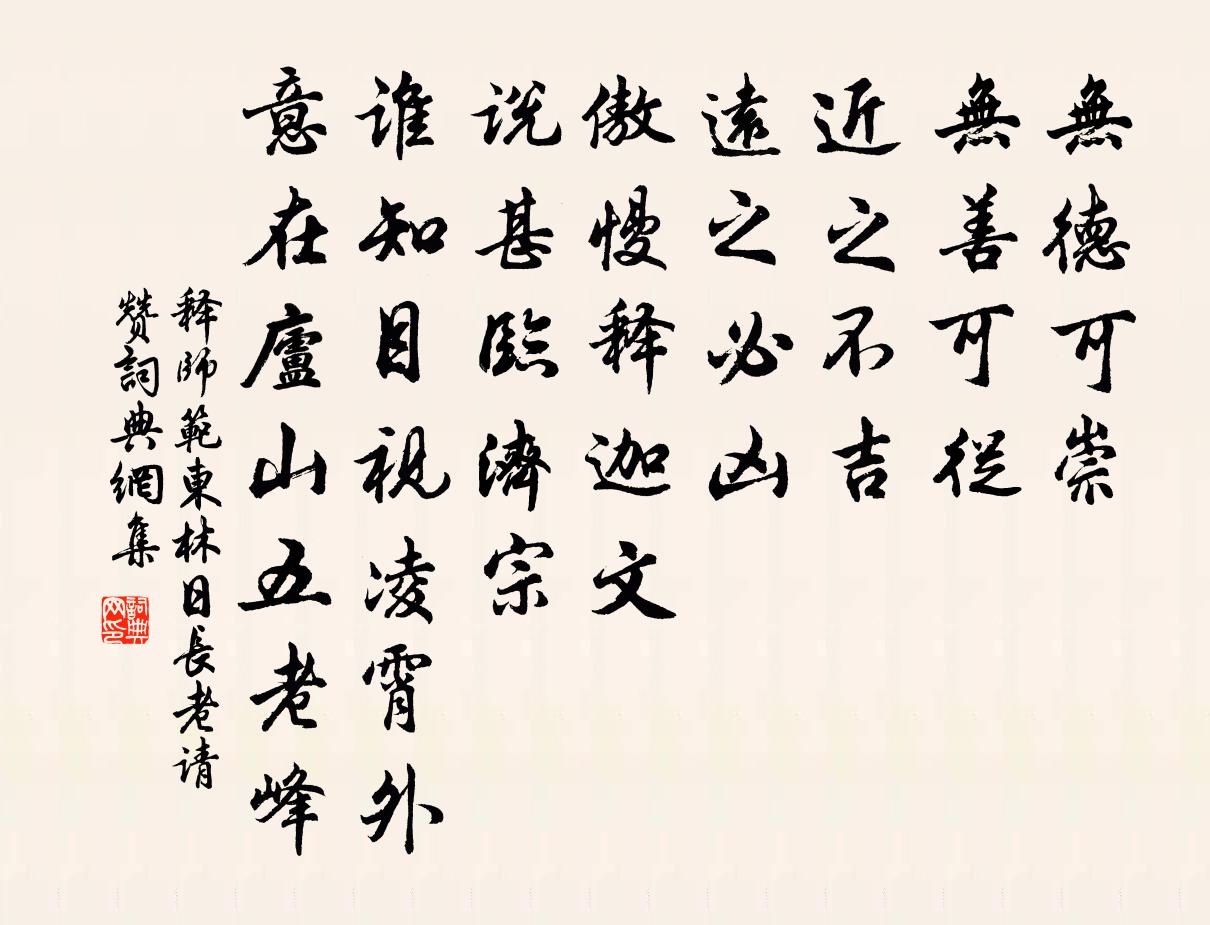 無德可崇
無善可從
近之不吉
遠之必凶
傲慢释迦文
说甚臨濟宗
谁知目視凌霄外
意在廬山五老峰
释師範東林日長老请
赞詞典網集
詞典网印